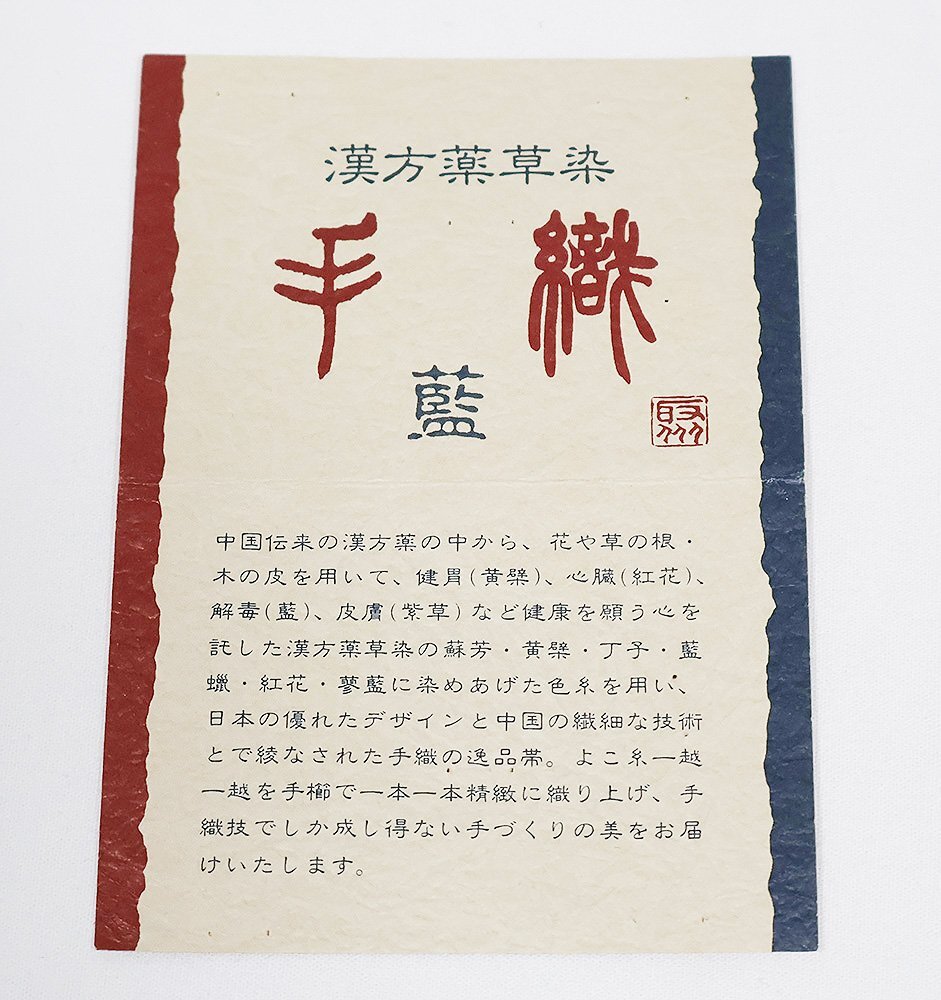 漢方薬草染
手織
藍
中国伝来の漢方薬の中から、花や草の根・
木の皮を用いて、健胃(黄檗)、心臓(紅花)、
解毒(藍)、皮膚(紫草)など健康を願う心を
託した漢方薬草染の蘇芳・黄檗・丁子・藍
蠟・紅花・蓼藍に染めあげた色糸を用い、
日本の優れたデザインと中国の繊細な技術
とで綾なされた手織の逸品帯。よこ糸一越
一越を手櫛で一本一本精緻に織り上げ、手
織技でしか成し得ない手づくりの美をお届
けいたします。